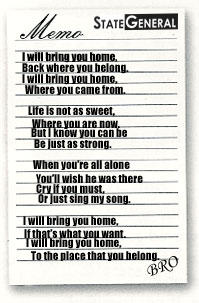 Memo
STATE GENERAL
I will bring you home,
Back where you belong.
I will bring you home,
Where you came from.
Life is not as sweet,
Where you are now,
But I know you can be
Be just as strong.
When you're all alone
You'll wish he was there
Cry if you must,
Or just sing my song.
I will bring you home,
If that's what you want.
I will bring you home,
To the place that you belong.
BRO